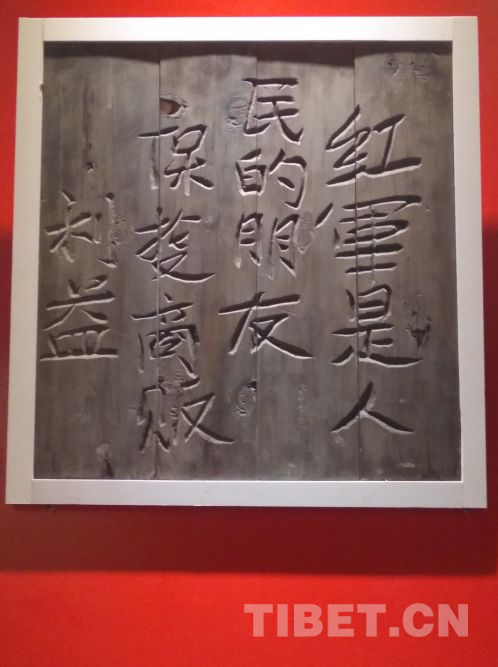 紅軍是人
民的朋友
保護商販
利益
TIBET.CN